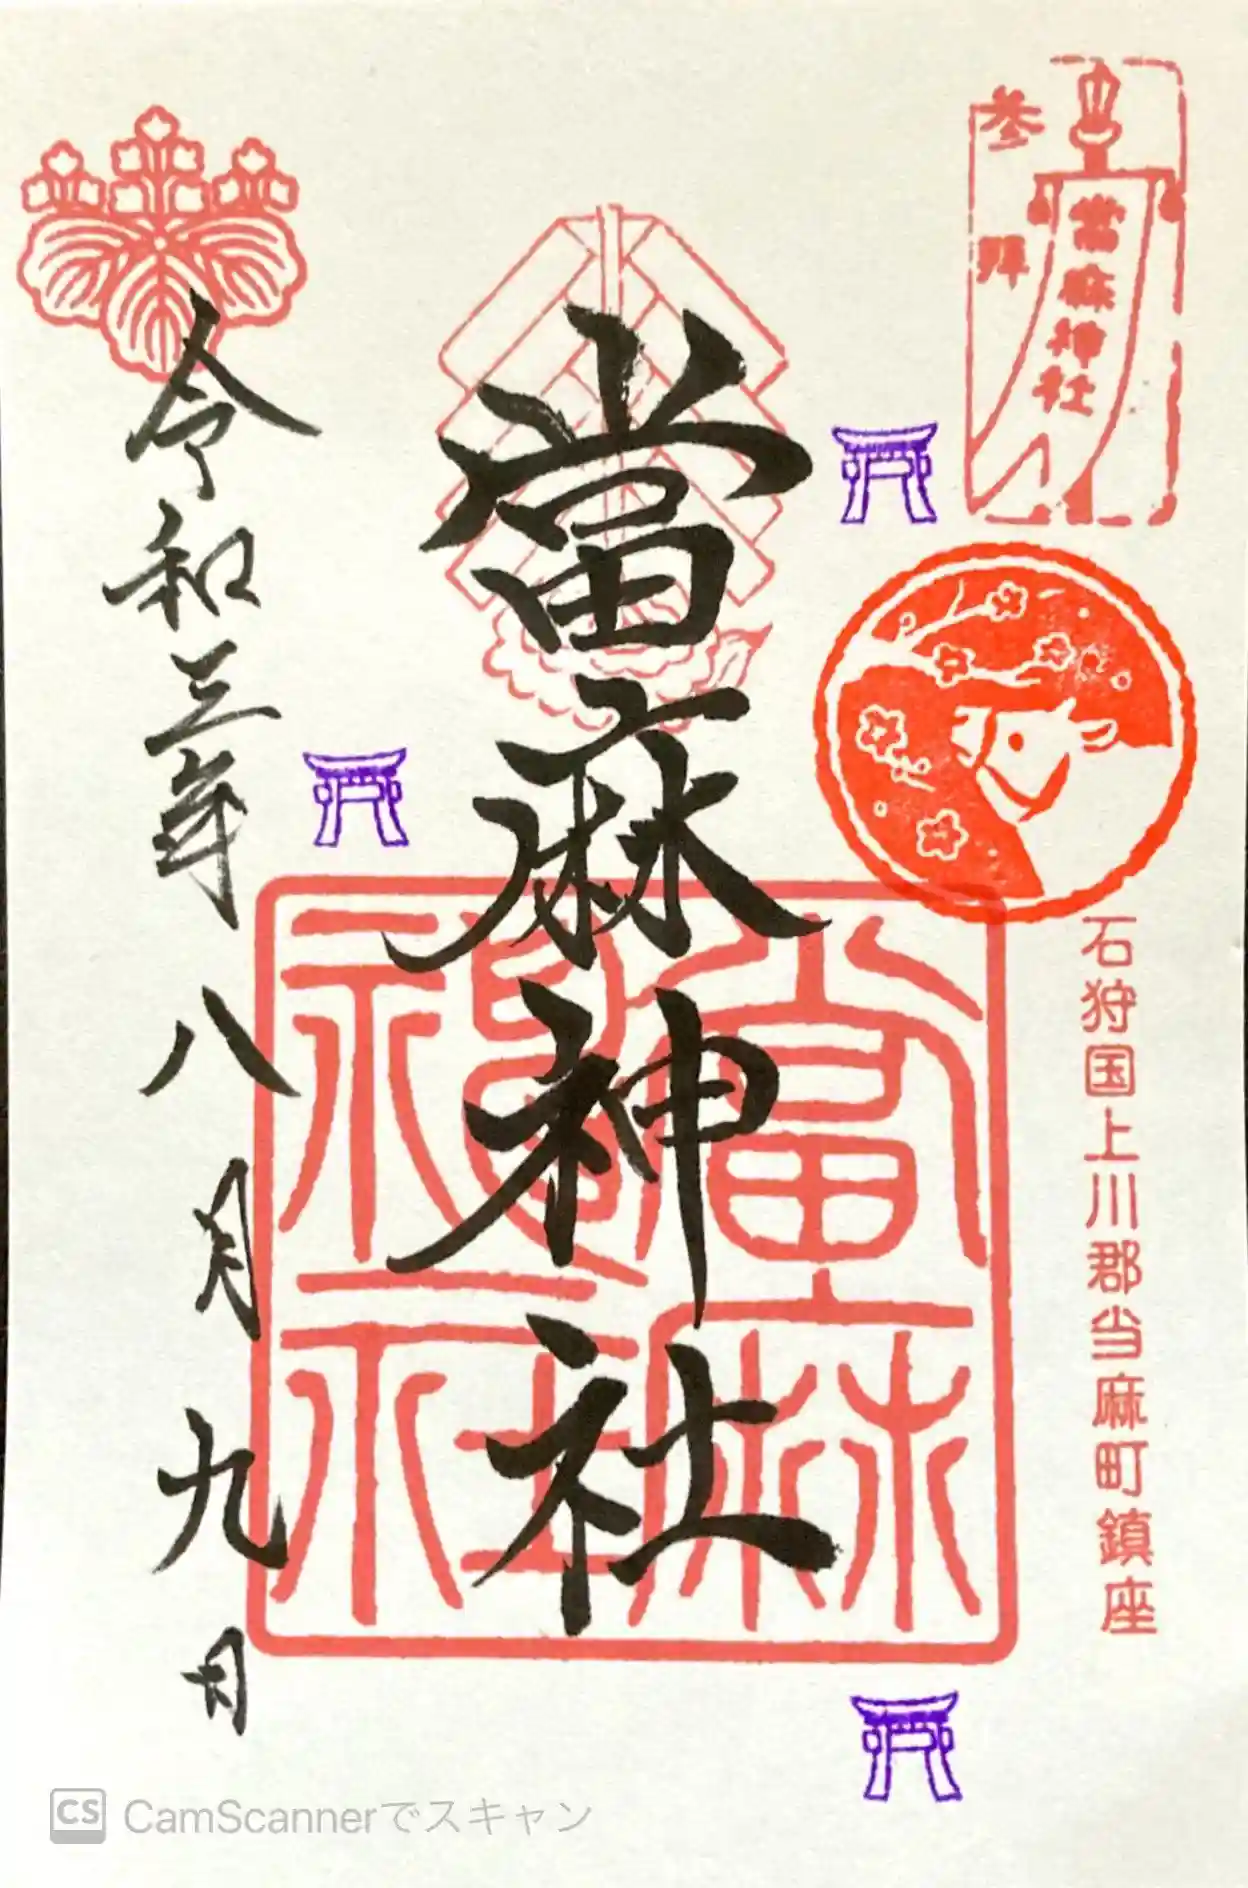 参拝
當麻神社
石狩国上川郡当麻町鎮座
當麻神社
當麻神社
令和三年八月九日
CS CamScannerでスキャン